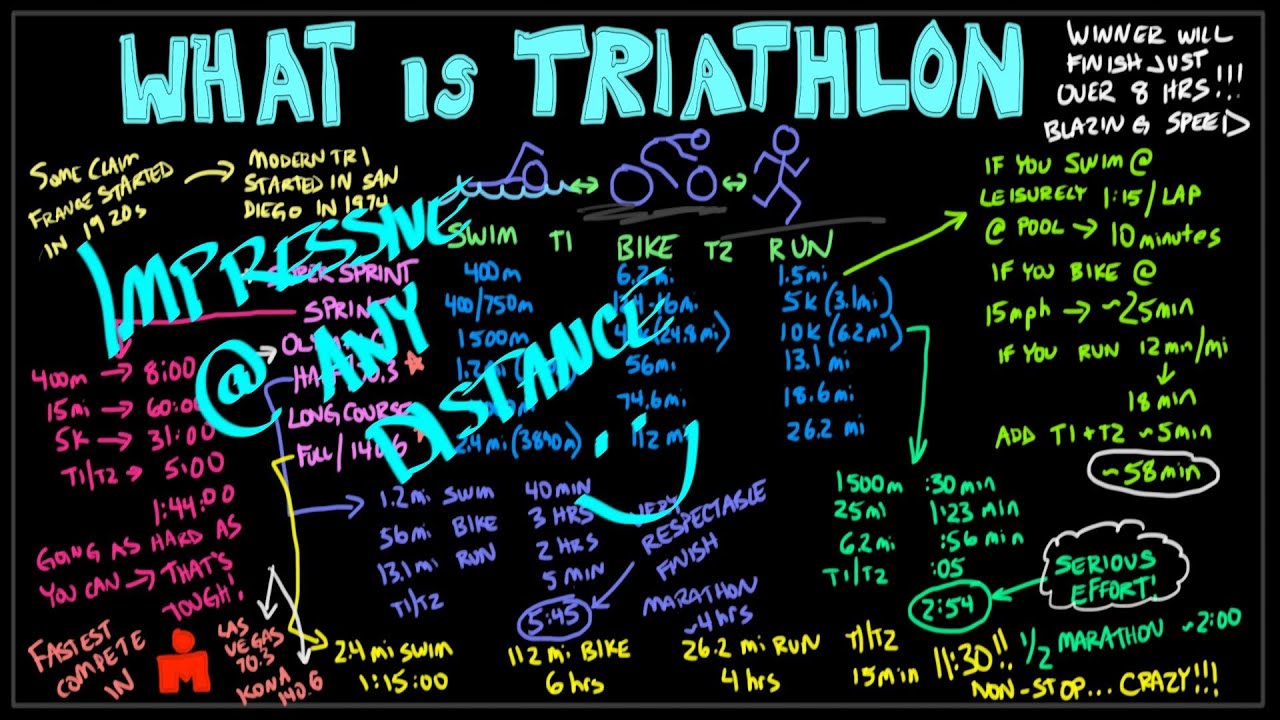 WHAT IS TRIATHLON
WINNER WILL
FINISH JUST
OVER 8 HRS!!!
BLAZING SPEED
SOME CLAIM
FRANCE STARTED
IN 1920s
MODERN TRI
STARTED IN SAN
DIEGO IN 1974
IMPRESSIVE
@ ANY
DISTANCE
SWIM T1 BIKE T2 RUN
SUPER SPRINT 400m 6.2mi 1.5mi
SPRINT 400/750m 5K (3.1mi)
1500m (24.8mi) 10K (6.2mi)
70.3 56mi 13.1 mi
LONG COURSE 74.6mi 18.6 mi
FULL/140.6 2.4mi (3890m) 112 mi 26.2 mi
IF YOU SWIM @
LEISURELY 1:15/LAP
@ POOL → 10 minutes
IF YOU BIKE @
15mph → ~25min
IF YOU RUN 12mn/mi
18 min
ADD T1+T2 ~5min
~58min
400m → 8:00
15mi → 60:00
5K → 31:00
T1/T2 → 5:00
1:44:00
GOING AS HARD AS
YOU CAN → THAT'S
TOUGH!
1.2mi SWIM 40MIN
56mi BIKE 3 HRS
13.1mi RUN 2 HRS
T1/T2 5 MIN
5:45
VERY
RESPECTABLE
FINISH
MARATHON
~4hrs
1500m :30min
25mi 1:23 min
6.2mi :56 min
T1/T2 :05
2:54
SERIOUS
EFFORT!
1/2 MARATHON ~2:00
FASTEST
COMPETE
IN
LAS
VEGAS
70.3
KONA
140.6
2.4mi SWIM 112mi BIKE 26.2 mi RUN T1/T2
1:15:00 6hrs 4hrs 15min
11:30!!
NON-STOP... CRAZY!!!